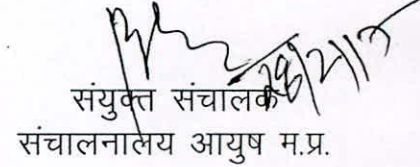 संयुक्त संचालक
संचालनालय आयुष म.प्र.